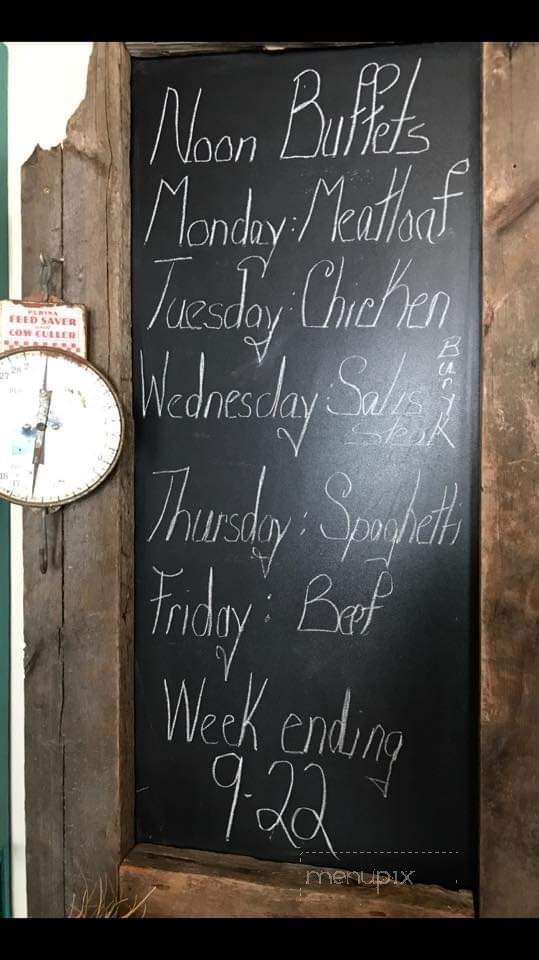 Noon Buffets
Monday: Meatloaf
Tuesday: Chicken
Wednesday: Salisbury
Steak
Thursday: Spaghetti
Friday: Beef
Week ending
9-22
PURINA
FEED SAVER
AND
COW CULLER
27 28
18 17
menupix